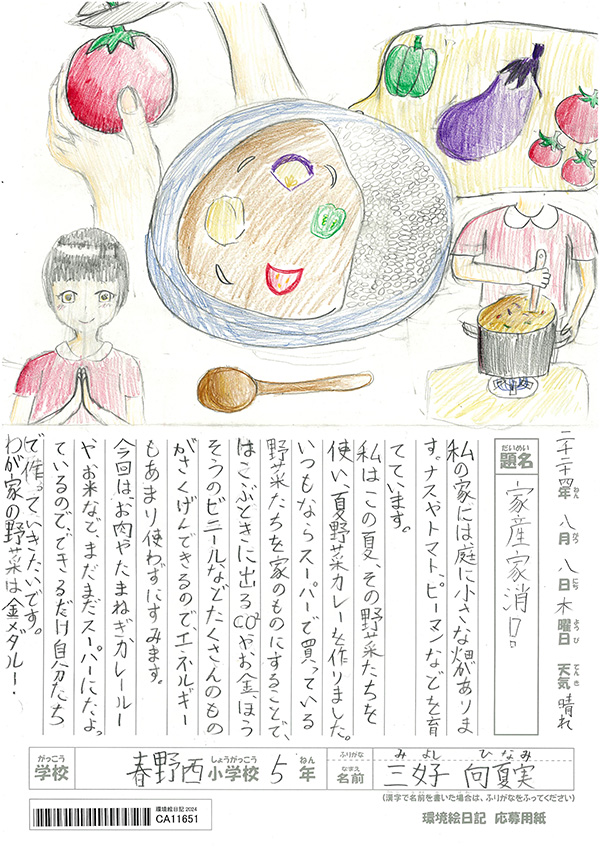 二千二十四年 八月 八日 木曜日 天気 晴れ
ねん がつ にち ようび てんき
だいめい
題名 家産家消！
私の家には庭に小さな畑がありま
す。ナスやトマト、ピーマンなどを育
てています。
私はこの夏、その野菜たちを
使い、夏野菜カレーを作りました。
いつもならスーパーで買っている
野菜たちを家のものにすることで、
はこぶときに出るCO²やお金、ほう
そうのビニールなどたくさんのもの
がさくげんできるので、エネルギー
もあまり使わずにすみます。
今回は、お肉やたまねぎ、カレールー
やお米など、まだまだスーパーにたよっ
ているので、できるだけ自分たち
で作っていきたいです。
わが家の野菜は金メダルー！
がっこう しょうがっこう ねん ふりがな みよし ひなみ
学校 春野西小学校 5年 なまえ 名前 三好 向夏実
(漢字で名前を書いた場合は、ふりがなをふってください)
環境絵日記 2024
CA11651
環境絵日記 応募用紙